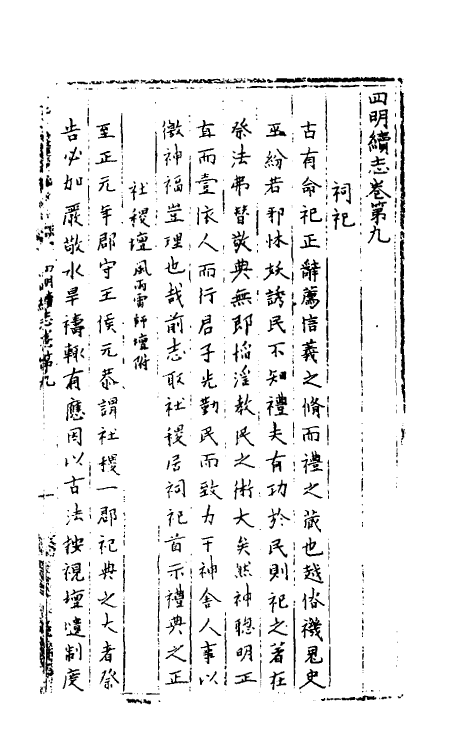 四明續志卷第九
祠祀
古有命祀正辭薦信義之脩而禮之葳也越俗禨鬼史
巫紛若邪怵妖誘民不知禮夫有功於民則祀之著在
祭法弗替敬典無即慆淫教民之術大矣然神聰明正
直而壹依人而行君子先勤民而致力于神舍人事以
徼神福豈理也哉前志取社稷居祠祀首示禮典之正
社稷壇風雨雷師壇附
至正元年郡守王侯元恭謂社稷一郡祀典之大者祭
告必加嚴敬水旱禱輒有應因以古法按視壇壝制度
四明續志卷第九
一